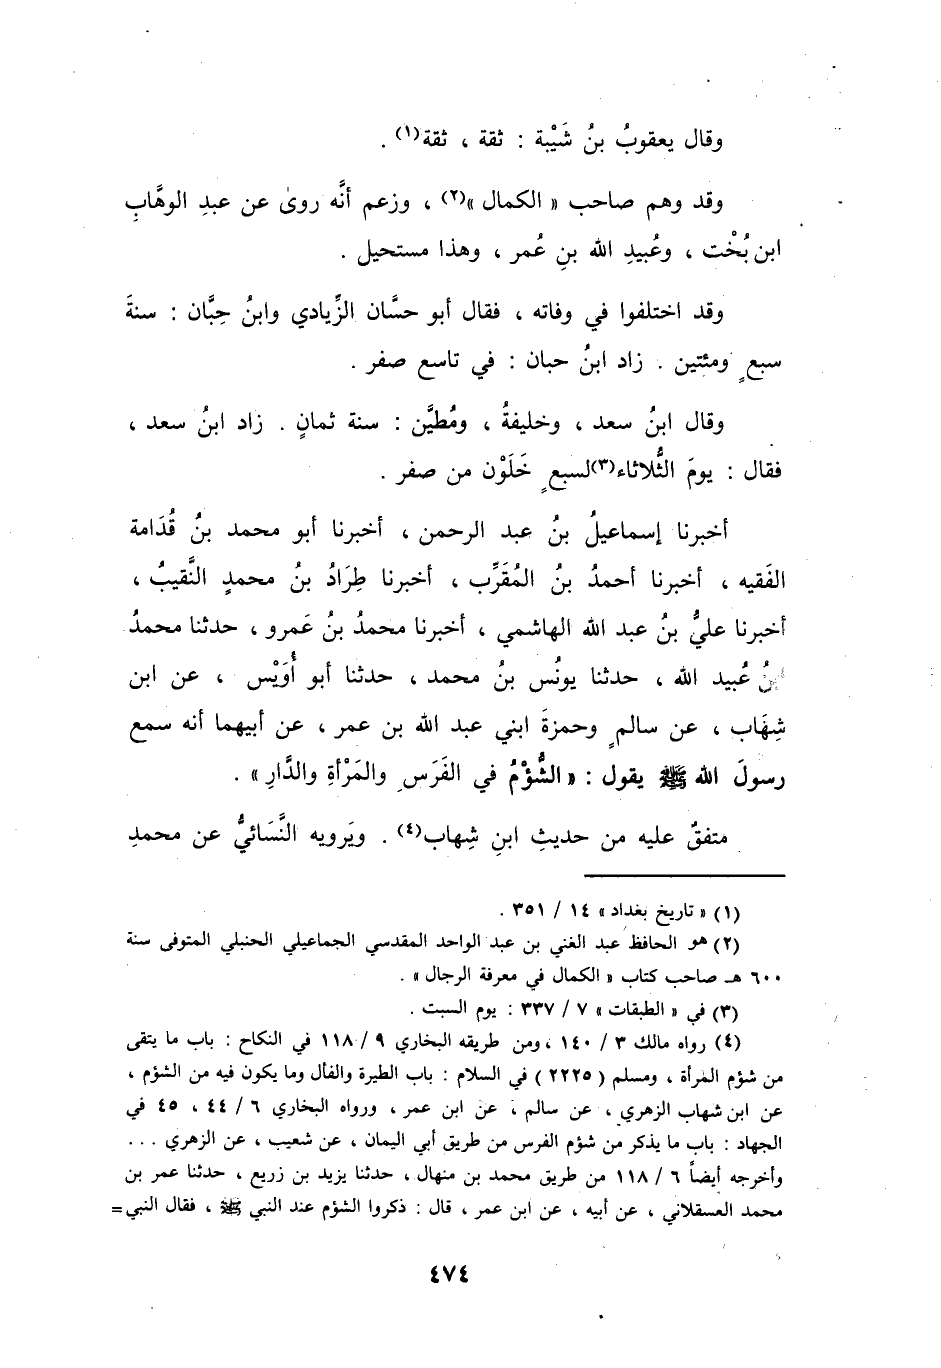 وقال يعقوبُ بنُ شَيْبة : ثقة ، ثقة(١) .
وقد وهم صاحب « الكمال »(٢) ، وزعم أنَّه روىٰ عن عبدِ الوهَّابِ
ابن بُخْت ، وعُبيدِ الله بنِ عُمر ، وهذا مستحيل .
وقد اختلفوا في وفاته ، فقال أبو حسَّان الزِّيادي وابنُ حِبَّان : سنةَ
سبعٍ ومئتين . زاد ابنُ حبان : في تاسع صفر .
وقال ابنُ سعد ، وخليفةُ ، ومُطيَّن : سنة ثمانٍ . زاد ابنُ سعد ،
فقال : يومَ الثُّلاثاء(٣)لسبعٍ خَلَوْن من صفر .
أخبرنا إسماعيلُ بنُ عبد الرحمن ، أخبرنا أبو محمد بنُ قُدَامة
الفَقيه ، أخبرنا أحمدُ بنُ المُقرِّب ، أخبرنا طِرَادُ بنُ محمدٍ النَّقيبُ ،
أخبرنا عليُّ بنُ عبد الله الهاشمي ، أخبرنا محمدُ بنُ عَمرو ، حدثنا محمدُ
بنُ عُبيد الله ، حدثنا يونُس بنُ محمد ، حدثنا أبو أُوَيْس ، عن ابن
شِهَاب ، عن سالمٍ وحمزةَ ابني عبد الله بن عمر ، عن أبيهما أنه سمع
رسولَ الله ﷺ يقول : « الشُّؤْمُ في الفَرَسِ والمَرْأةِ والدَّارِ » .
متفقٌ عليه من حديثِ ابنِ شِهاب(٤) . ويَرويه النَّسَائيُّ عن محمدِ
(١) « تاريخ بغداد » ١٤ / ٣٥١ .
(٢) هو الحافظ عبد الغني بن عبد الواحد المقدسي الجماعيلي الحنبلي المتوفى سنة
٦٠٠ هـ صاحب كتاب « الكمال في معرفة الرجال » .
(٣) في « الطبقات » ٧ / ٣٣٧ : يوم السبت .
(٤) رواه مالك ٣ / ١٤٠ ، ومن طريقه البخاري ٩ / ١١٨ في النكاح : باب ما يتقى
من شؤم المرأة ، ومسلم ( ٢٢٢٥ ) في السلام : باب الطيرة والفأل وما يكون فيه من الشؤم ،
عن ابن شهاب الزهري ، عن سالم ، عن ابن عمر ، ورواه البخاري ٦ / ٤٤ ، ٤٥ في
الجهاد : باب ما يذكر من شؤم الفرس من طريق أبي اليمان ، عن شعيب ، عن الزهري ...
وأخرجه أيضاً ٦ / ١١٨ من طريق محمد بن منهال ، حدثنا يزيد بن زريع ، حدثنا عمر بن
محمد العسقلاني ، عن أبيه ، عن ابن عمر ، قال : ذكروا الشؤم عند النبي ﷺ ، فقال النبي =
٤٧٤